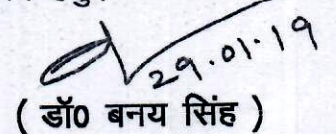 29.01.19
( डॉ0 बनय सिंह )